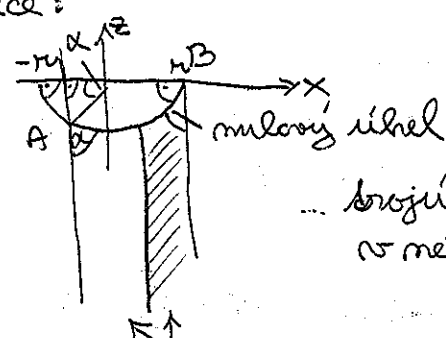 α z
-r r B x
α
A α nulový úhel
... trojú
v ne